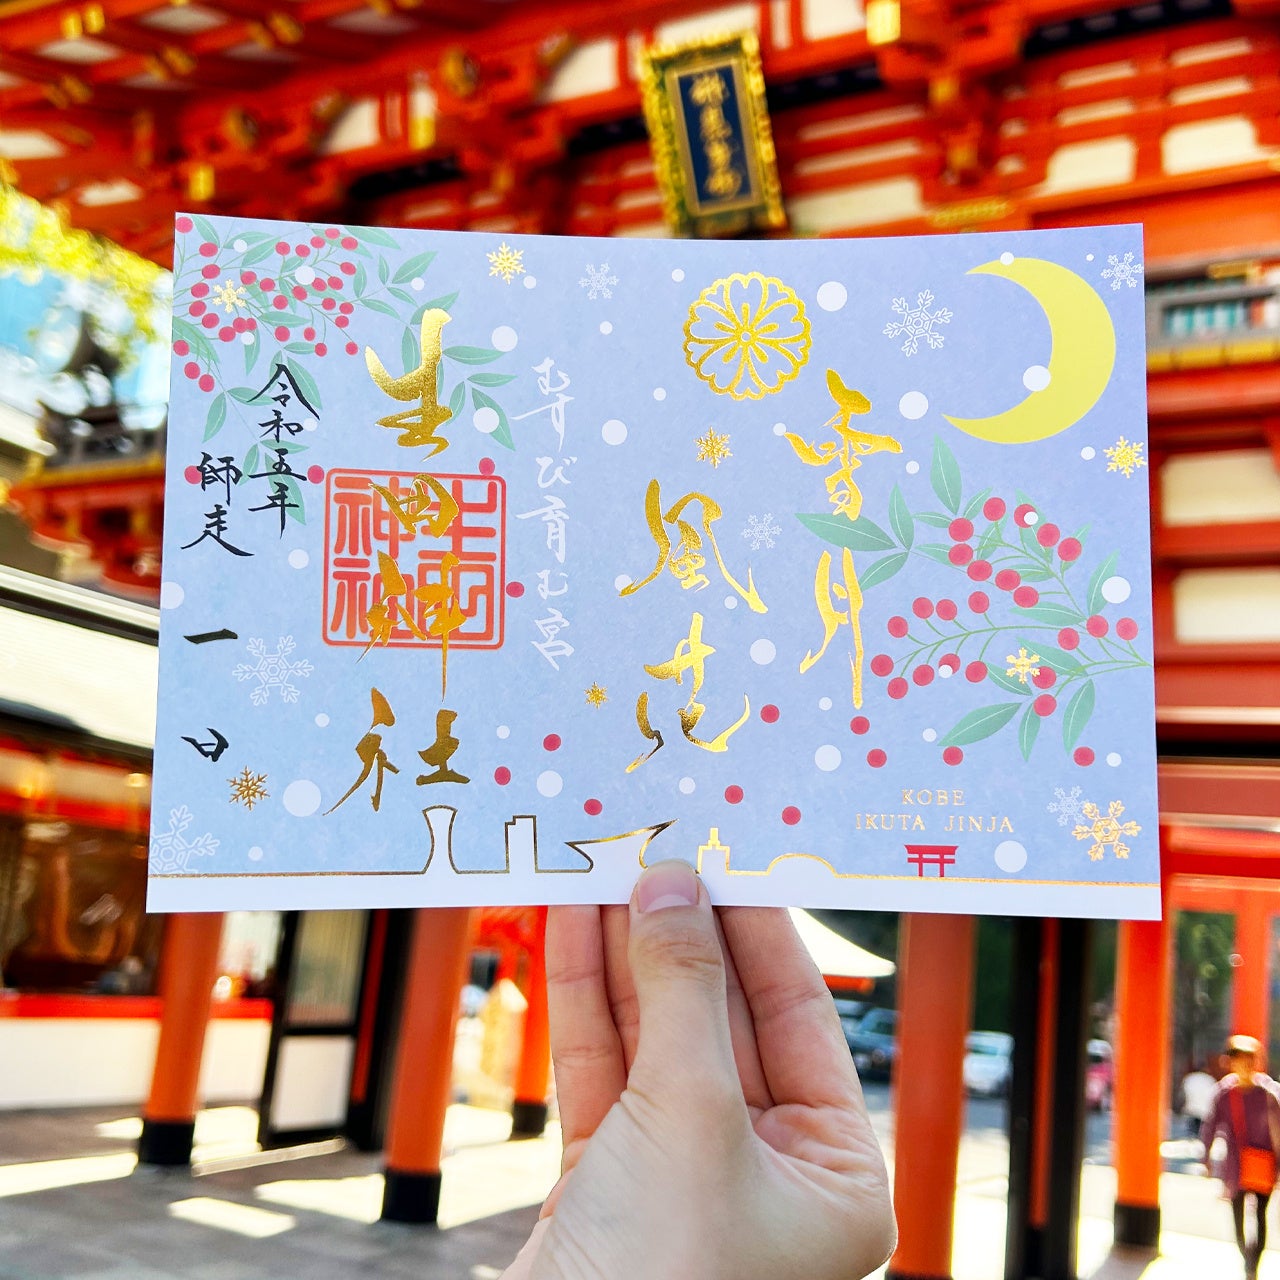 雪月
風花
KOBE
IKUTA JINJA
むすび育む宮
生田神社
生田
神社
令和五年
師走
一日